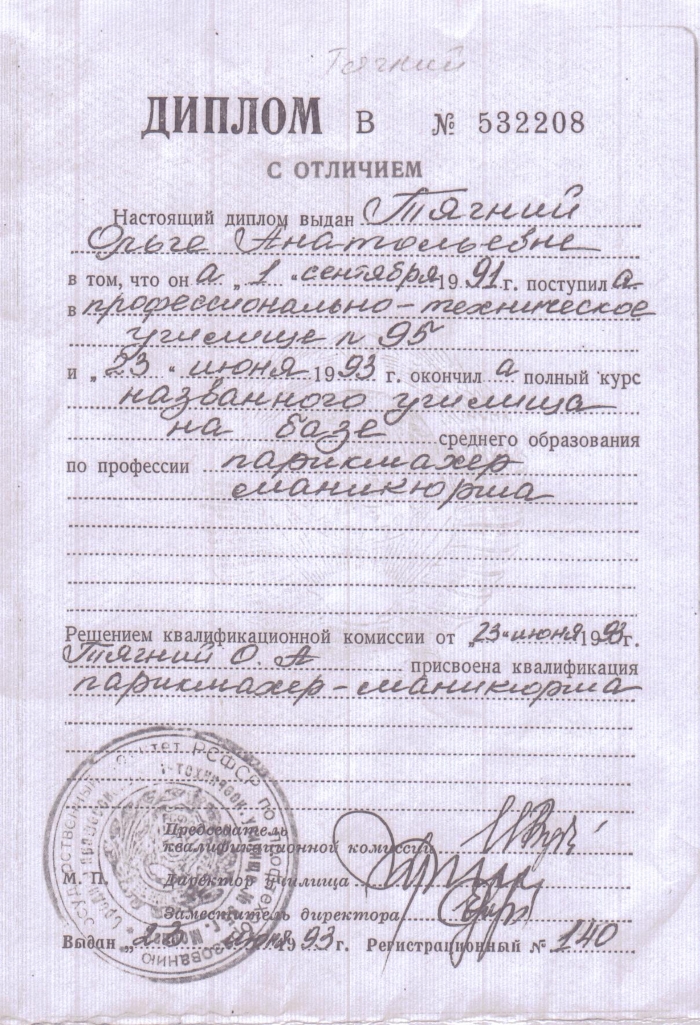 Тягний
ДИПЛОМ В № 532208
С ОТЛИЧИЕМ
Настоящий диплом выдан Тягний
Ольге Анатольевне
в том, что он а „ 1 “ сентября 1991 г. поступил а
в профессионально-техническое
училище n 95
и „ 23 “ июня 1993 г. окончил а полный курс
названного училища
на базе среднего образования
по профессии парикмахер
маникюрша
Решением квалификационной комиссии от „23“ июня 1993 г.
Тягний О. А присвоена квалификация
парикмахер-маникюрша
Председатель
квалификационной комиссии
М. П. Директор училища
Заместитель директора
Выдан „23 июня 1993 г. Регистрационный № 140
РСФСР по